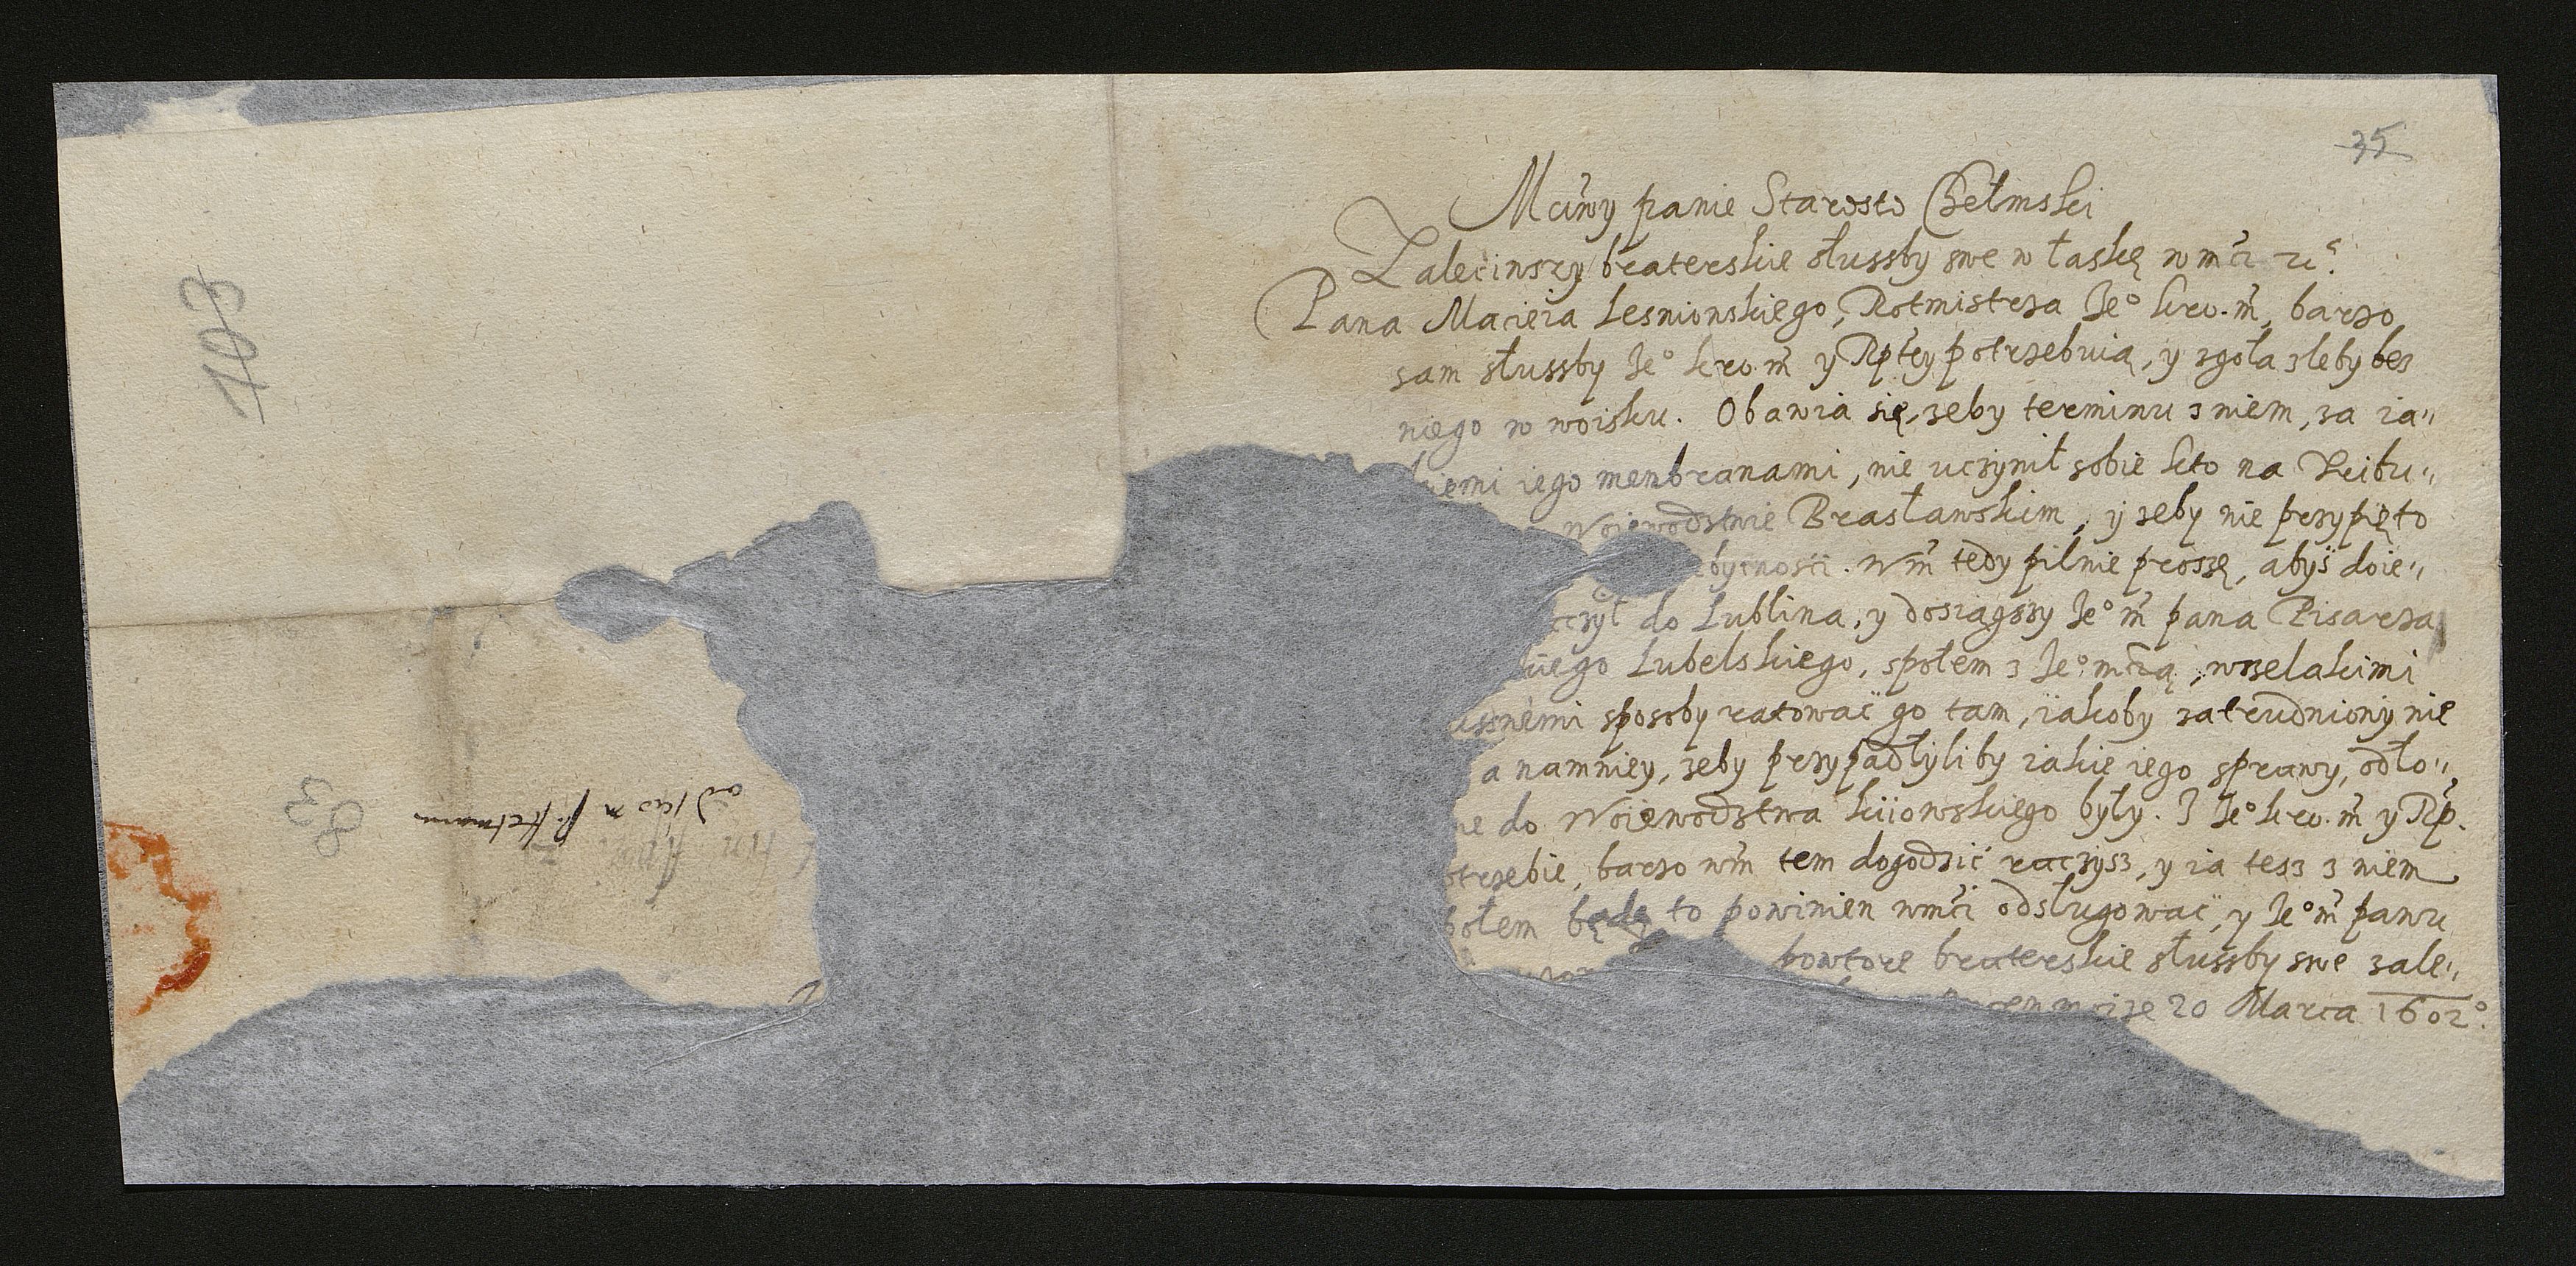 35
Mciwy panie Starosto Chełmski
Zaleciwszy braterskie słussby swe w łaskę w mći
Pana Macieia Lesniowskiego, Rotmistrza Je° kro. m̃, barzo
sam słussby Je° kro. m̃ y Rptey potrzebuią, y zgoła zleby bez
niego w woisku. Obawia się, zeby terminu z niem, za ia"
kiemi iego menbranami, nie uczynił sobie kto na Tribu"
Woiewodstwie Brasławskim, y zeby nie przypięto
bytnosći. Wm̃ tedy pilnie proszę, abyś doie"
czył do Lublina, y dosiągszy Je° m̃ pana Pisarza
kiego Lubelskiego, społem z Je° mćią, wszelakimi
ussnemi sposoby ratować go tam, iakoby zatrudniony nie
a namniey, zeby przypadłyliby iakie iego sprawy, odło"
ne do Woiewodstwa kiiowskiego były. I Je° kro. m̃ y Rp.
otrzebie, barzo wm̃ tem dogodzić raczysz, y ia tesz z niem
połem będę to powinien wmći odsługować, y Je° m̃ panu
powtore braterskie słussby swe zale"
20 Marca 1602°.
103
83
od